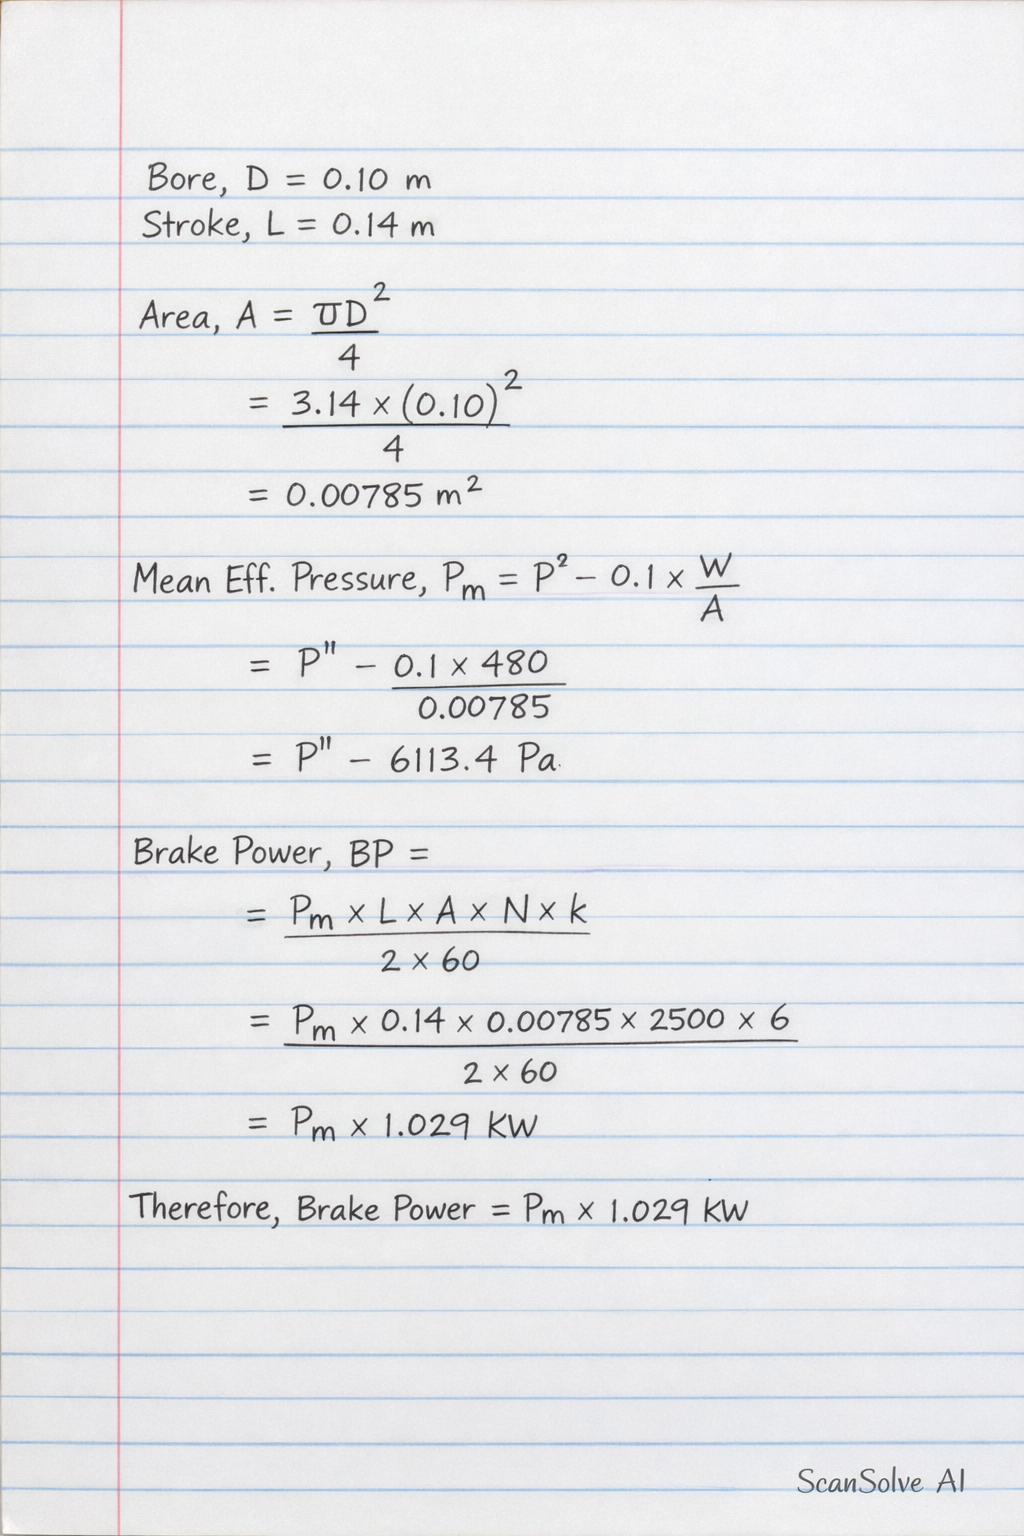 Bore, D = 0.10 m
Stroke, L = 0.14 m
Area, A = πD²
4
= 3.14 × (0.10)²
4
= 0.00785 m²
Mean Eff. Pressure, Pm = P² − 0.1 × W
A
= P" − 0.1 × 480
0.00785
= P" − 6113.4 Pa.
Brake Power, BP =
= Pm × L × A × N × k
2 × 60
= Pm × 0.14 × 0.00785 × 2500 × 6
2 × 60
= Pm × 1.029 KW
Therefore, Brake Power = Pm × 1.029 KW
ScanSolve AI